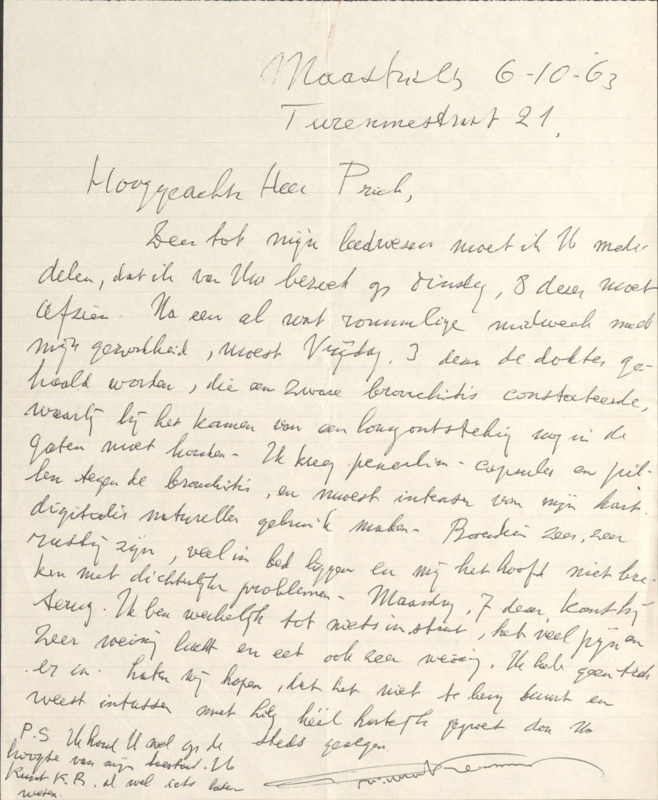 Maastricht 6-10-'63
Turennestraat 21,
Hooggeachte Heer Prick,
Zeer tot mijn leedwezen moet ik U mede-
delen, dat ik van Uw bezoek op dinsdag, 8 dezer moet
afzien. Na een al wat rommelige midweek met
mijn gezondheid, moest Vrijdag. 3 dezer de dokter ge-
haald worden, die een zware bronchitis constateerde,
waarbij hij het komen van een longontsteking nog in de
gaten moet houden - Ik kreeg penecilin-capsules en pil-
len tegen de bronchitis, en moest intenser van mijn hart-
digitalis naturellen gebruik maken - Bovendien zeer, zeer
rustig zijn, veel in bed liggen en mij het hoofd niet bre-
ken met dichterlijke problemen - Maandag, 7 dezer, komt hij
terug. Ik ben werkelijk tot niets in staat, heb veel pijn en
zeer weinig lucht en eet ook zeer weinig. Ik heb geen trek
er in. Laten wij hopen, dat het niet te lang duurt en
weest intussen met heel hartelijk gegroet door Uw
steds genegen
P.S. Ik houd U wel op de
hoogte van mijn toestand. U
kunt K.R. al wel iets laten
weten.